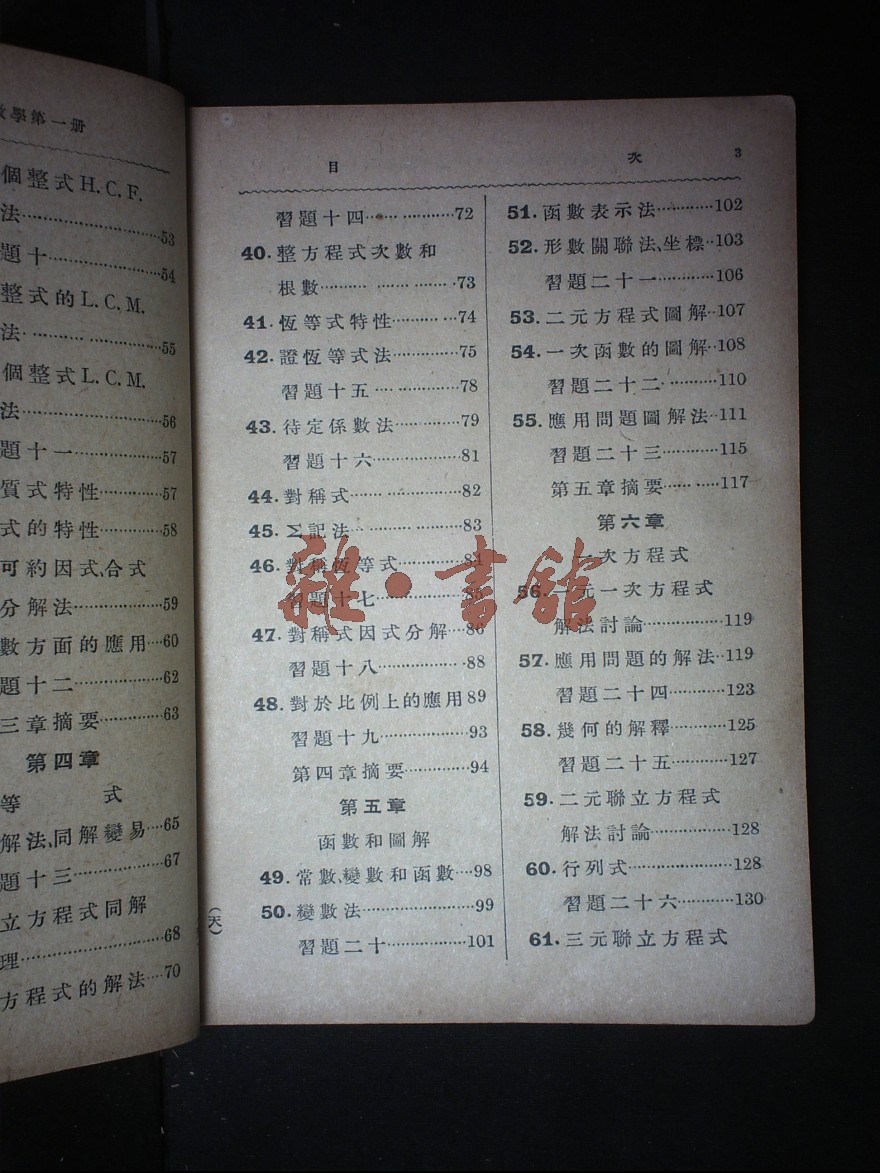 數學第一册
個整式H.C.F.
法……53
題十……54
整式的L.C.M.
法……55
個整式L.C.M.
法……56
題十一……57
質式特性……57
式的特性……58
可約因式,合式
分解法……59
數方面的應用…60
題十二……62
三章摘要……63
第四章
等 式
解法,同解變易…65
題十三……67
立方程式同解
理……68
方程式的解法…70
目 次 3
習題十四……72
40.整方程式次數和
根數……73
41.恆等式特性……74
42.證恆等式法……75
習題十五……78
43.待定係數法……79
習題十六……81
44.對稱式……82
45.Σ記法……83
46.對稱恆等式……84
習題十七……85
47.對稱式因式分解…86
習題十八……88
48.對於比例上的應用89
習題十九……93
第四章摘要……94
第五章
函數和圖解
49.常數,變數和函數…98
50.變數法……99
習題二十……101
(天)
51.函數表示法……102
52.形數關聯法,坐標…103
習題二十一……106
53.二元方程式圖解…107
54.一次函數的圖解…108
習題二十二……110
55.應用問題圖解法…111
習題二十三……115
第五章摘要……117
第六章
一次方程式
56.一元一次方程式
解法討論……119
57.應用問題的解法…119
習題二十四……123
58.幾何的解釋……125
習題二十五……127
59.二元聯立方程式
解法討論……128
60.行列式……128
習題二十六……130
61.三元聯立方程式
雜·書館